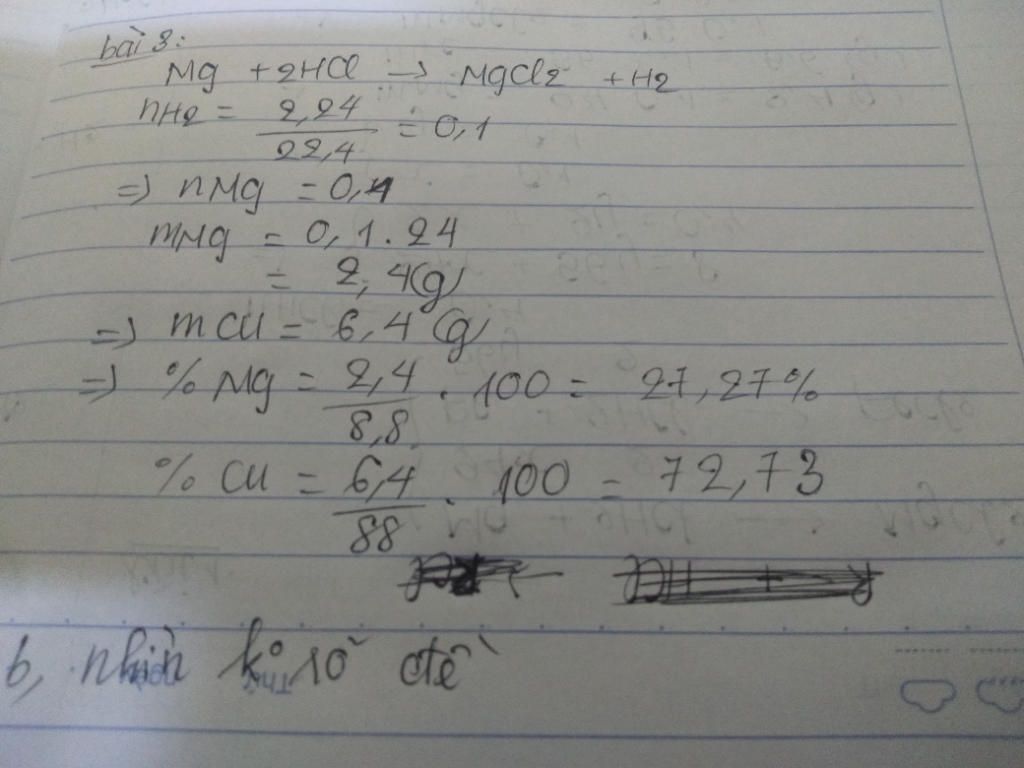 bài 3:
Mg + 2HCl → MgCl2 + H2
nH2 = 2,24 / 22,4 = 0,1
=> nMg = 0,1
mMg = 0,1.24
= 2,4(g)
=> mCu = 6,4 (g)
=> % Mg = 2,4 / 8,8 . 100 = 27,27%
% Cu = 6,4 / 88 . 100 = 72,73
b, nhìn ko rõ đề